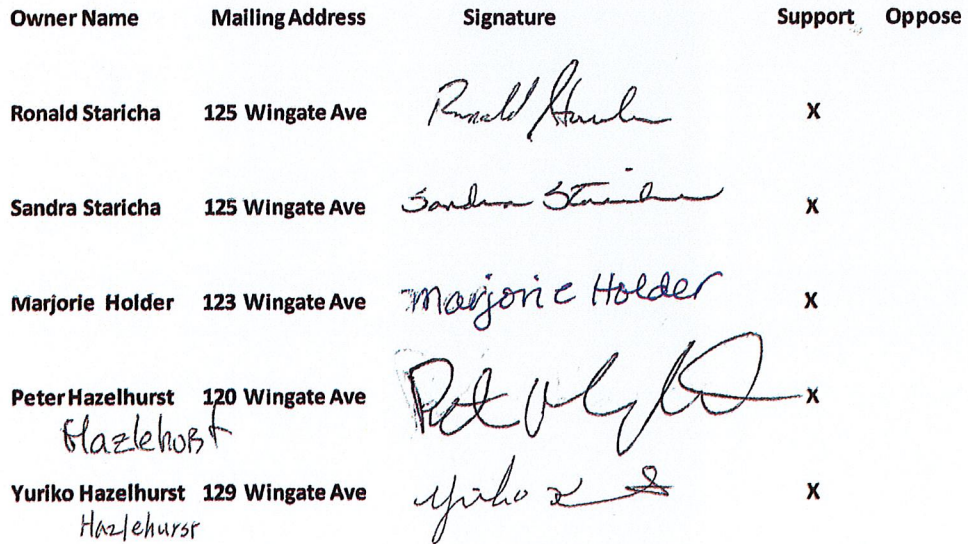 Owner Name Mailing Address Signature Support Oppose
Ronald Staricha 125 Wingate Ave Ronald X
Sandra Staricha 125 Wingate Ave Sandra Staricha X
Marjorie Holder 123 Wingate Ave Marjorie Holder X
Peter Hazelhurst 120 Wingate Ave Pet X
Hazlehurst
Yuriko Hazelhurst 129 Wingate Ave Yuriko X
Hazlehurst